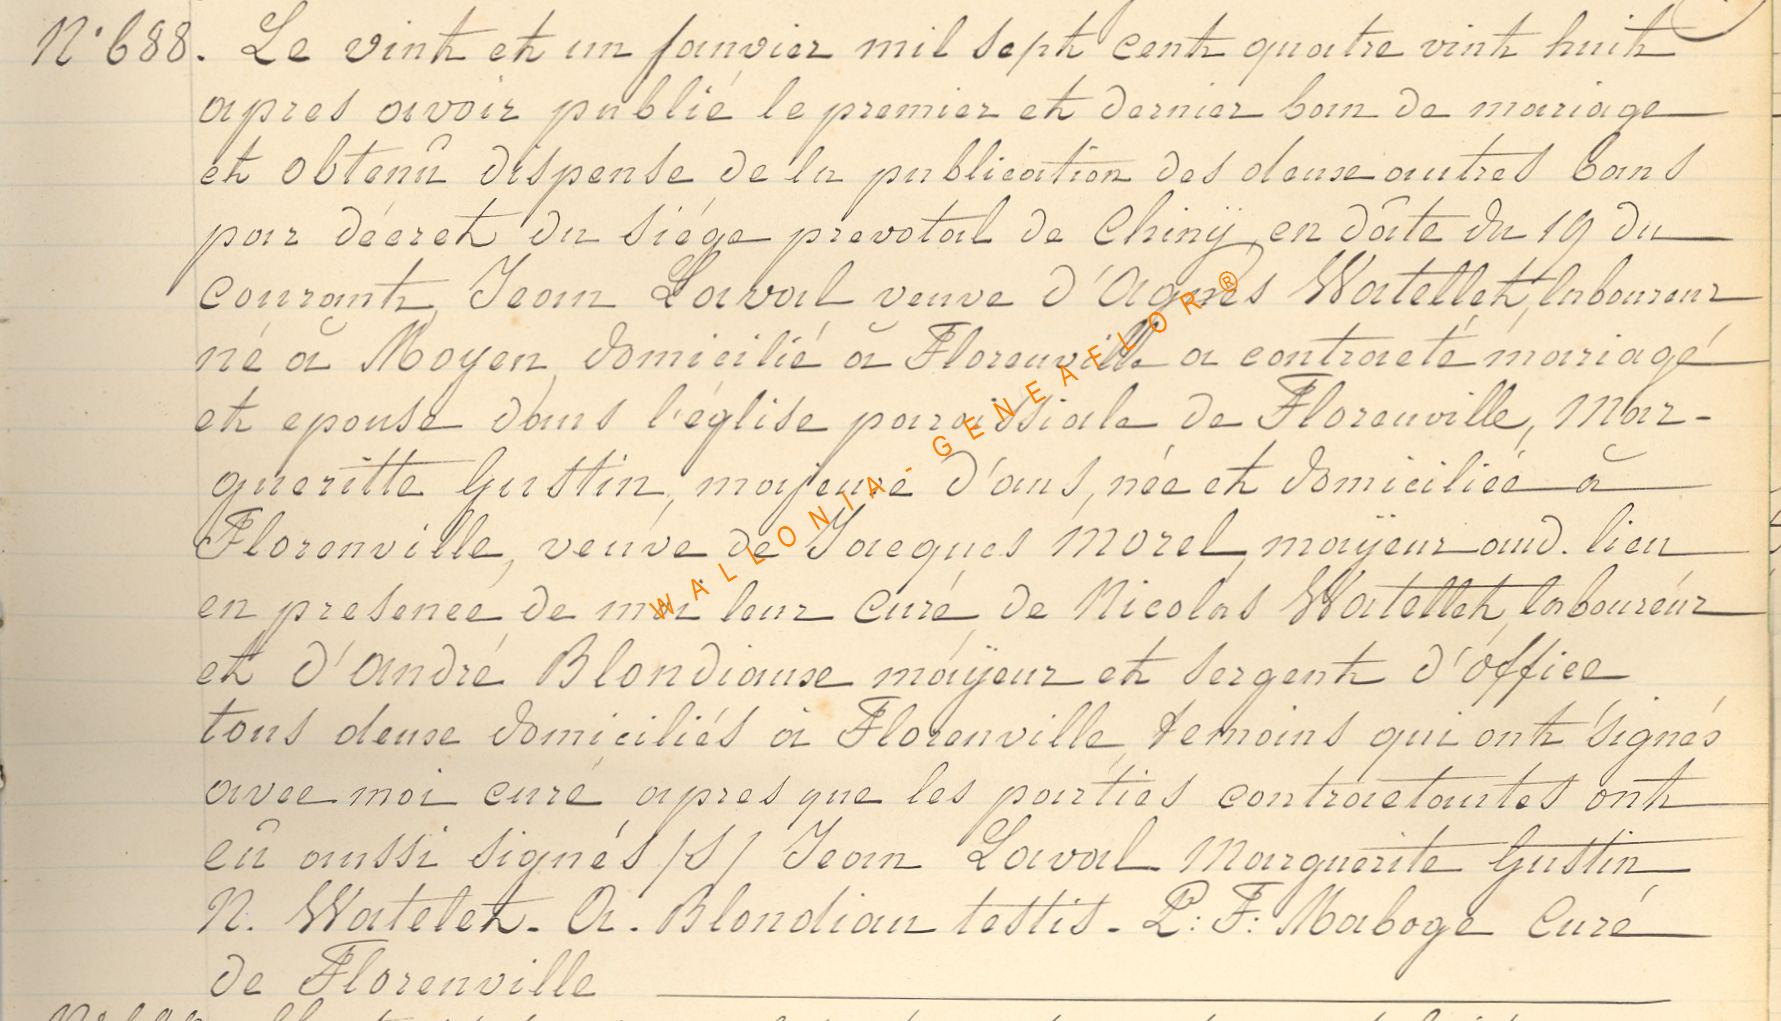 N° 688. Le vint et un janvier mil sept cent quatre vint huit
apres avoir publié le premier et dernier ban de mariage
et obtenû dispense de la publication des deux autres bans
par décret du siége prevotal de Chinÿ, en dâte du 19 du
courant, Jean Laval veuve d'Agnes Watellet, laboureur
né à Moyen, domicilié à Florenville a contracté mariagé
et epouse dans l'église paroissiale de Florenville, Mar-
gueritte Gustin, majeure d'ans, née et domiciliée à
Florenville, veuve de Jacques Morel, maÿeur aud. lieu
en presence de moi leur Curé, de Nicolas Watellet, laboureur
et d'André Blondiaux maÿeur et sergent d'office
tous deux domiciliés à Florenville, temoins qui ont signés
avec moi curé apres que les parties contractantes ont
eû aussi signés /s/ Jean Laval. Marguerite Gustin
N. Watelet. A. Blondiau testis. P: F: Maboge Curé
de Florenville
WALLONIA - GENEAELOR®